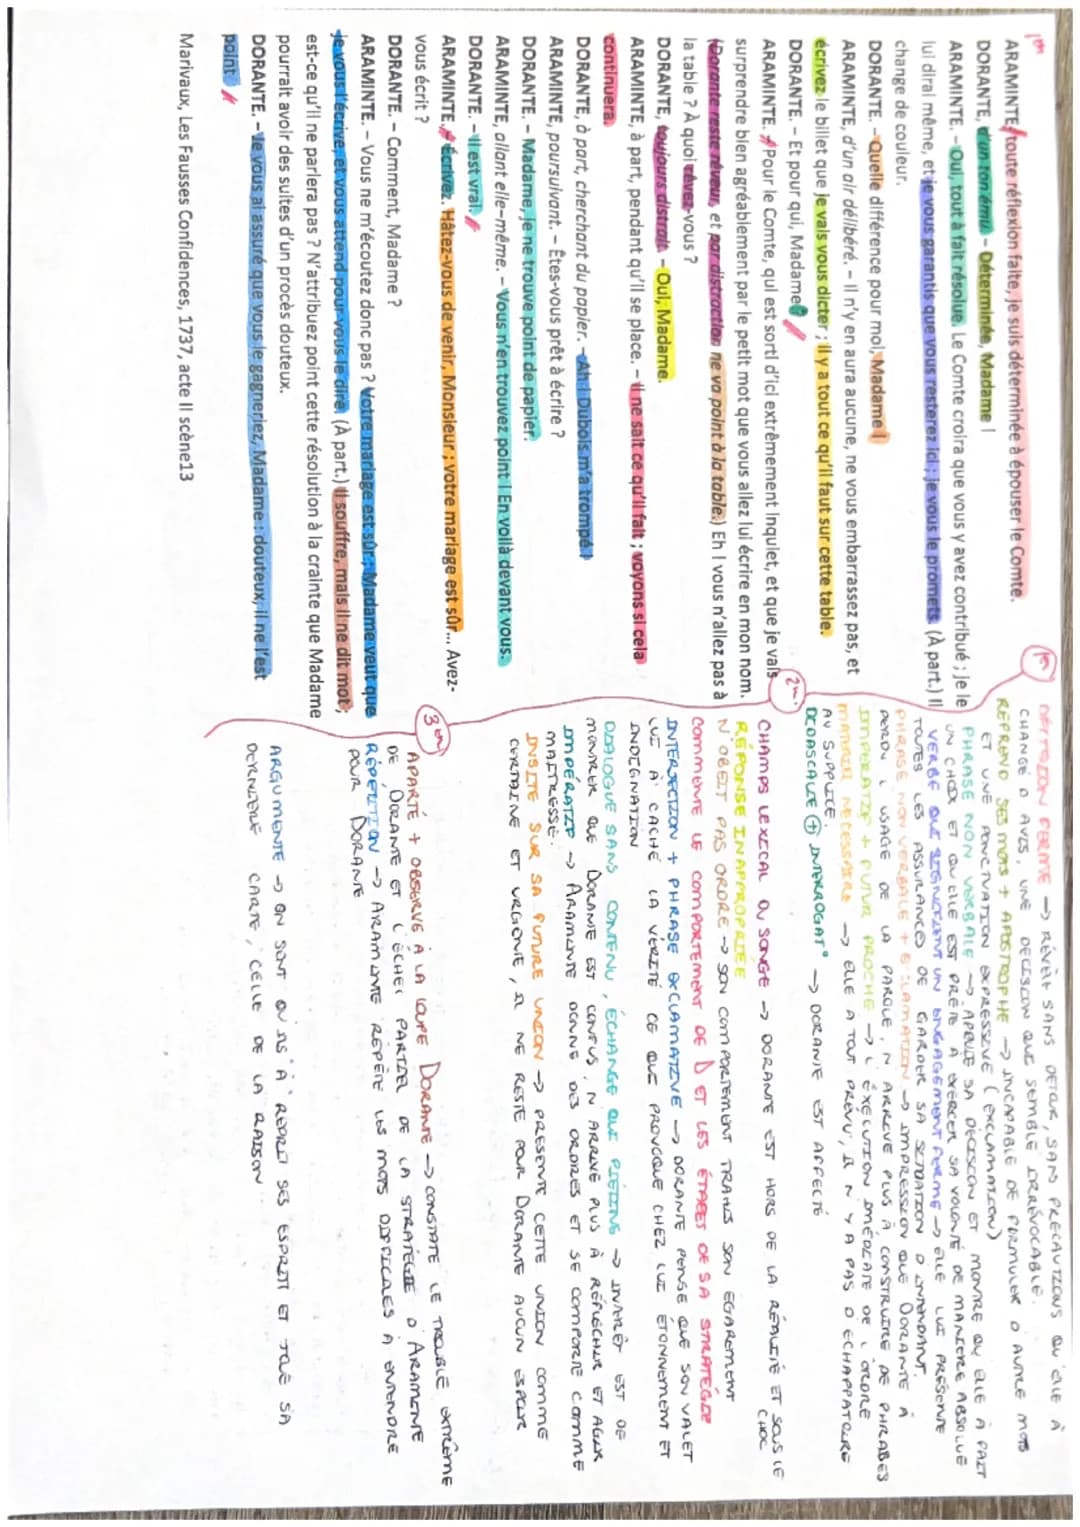 1er
ARAMINTE, toute réflexion faite, je suis déterminée à épouser le Comte.
DORANTE, d'un ton ému. – Déterminée, Madame !
ARAMINTE. – Oui, tout à fait résolue. Le Comte croira que vous y avez contribué ; je le
lui dirai même, et je vous garantis que vous resterez ici ; je vous le promets. (À part.) Il
change de couleur.
DORANTE. – Quelle différence pour moi, Madame !
ARAMINTE, d'un air délibéré. – Il n'y en aura aucune, ne vous embarrassez pas, et
écrivez le billet que je vais vous dicter ; il y a tout ce qu'il faut sur cette table.
DORANTE. – Et pour qui, Madame ?
ARAMINTE. – Pour le Comte, qui est sorti d'ici extrêmement inquiet, et que je vais
surprendre bien agréablement par le petit mot que vous allez lui écrire en mon nom.
(Dorante reste rêveur, et par distraction ne va point à la table.) Eh ! vous n'allez pas à
la table ? À quoi rêvez-vous ?
DORANTE, toujours distrait. – Oui, Madame.
ARAMINTE, à part, pendant qu'il se place. – Il ne sait ce qu'il fait ; voyons si cela
continuera.
DORANTE, à part, cherchant du papier. – Ah ! Dubois m'a trompé !
ARAMINTE, poursuivant. – Êtes-vous prêt à écrire ?
DORANTE. – Madame, je ne trouve point de papier.
ARAMINTE, allant elle-même. – Vous n'en trouvez point ! En voilà devant vous.
DORANTE. – Il est vrai.
ARAMINTE. – Écrivez. Hâtez-vous de venir, Monsieur ; votre mariage est sûr... Avez-
vous écrit ?
DORANTE. – Comment, Madame ?
ARAMINTE. – Vous ne m'écoutez donc pas ? Votre mariage est sûr ; Madame veut que
je vous l'écrive, et vous attend pour vous le dire. (À part.) Il souffre, mais il ne dit mot ;
est-ce qu'il ne parlera pas ? N'attribuez point cette résolution à la crainte que Madame
pourrait avoir des suites d'un procès douteux.
DORANTE. – Je vous ai assuré que vous le gagneriez, Madame : douteux, il ne l'est
point
Marivaux, Les Fausses Confidences, 1737, acte II scène13
RÉVÈLE SANS DETOUR, SANS PRECAUTIONS QU'ELLE A
CHANGÉ D'AVIS, UNE DECISION QUE SEMBLE IRRÉVOCABLE.
REPREND SES MOTS + APOSTROPHE → INCAPABLE DE FORMULER D'AUTRE MOTS
ET UNE PONCTUATION EXPRESSIVE (EXCLAMATION)
PHRASE NON VERBALE → APPUIE SA DECISION ET MONTRE QU'ELLE A FAIT
UN CHOIX ET QU'ELLE EST PRÊTE A EXERCER SA VOLONTÉ DE MANIERE ABSOLUE
VERBE QUI SIGNIFIENT UN ENGAGEMENT FERME → ELLE LUI PRÉSENTE
TOUTES LES ASSURANCES DE GARDER SA SITUATION D'INTENDANT.
PHRASE NON VERBALE + EXCLAMATION → IMPRESSION QUE DORANTE A
PERDU L'USAGE DE LA PAROLE, N'ARRIVE PLUS À CONSTRUIRE DE PHRASES
IMPERATIF + FUTUR PROCHE → L'ÉXECUTION IMÉDIATE DE L'ORDRE
MATERIEL NECESSAIRE → ELLE A TOUT PRÉVU, IL N'Y A PAS D'ECHAPPATOIRE
AU SUPPLICE.
DIDASCALIE + INTERROGAT° → DORANTE EST AFFECTÉ
2m.
CHAMPS LEXICAL DU SONGE → DORANTE EST HORS DE LA RÉALITÉ ET SOUS LE
CHOC
RÉPONSE INAPPROPRIÉE
N'OBEIT PAS ORDRE → SON COMPORTEMENT TRAHIS SON EGAREMENT
COMMENTE LE COMPORTEMENT DE D ET LES ÉTAPES DE SA STRATÉGIE
INTERJECTION + PHRASE EXCLAMATIVE → DORANTE PENSE QUE SON VALET
LUI A CACHÉ LA VERITÉ CE QUE PROVOQUE CHEZ LUI ETONNEMENT ET
INDIGNATION
DIALOGUE SANS CONTENU, ÉCHANGE QUI PIETINE → INTÉRÊT EST DE
MONTRER QUE DORANTE EST CONFUS, N'ARRIVE PLUS À RÉFLÉCHIR ET AGIR
IMPÉRATIF → ARAMINTE DONNE DES ORDRES ET SE COMPORTE COMME
MAITRESSE.
INSITE SUR SA FUTURE UNION → PRESENTE CETTE UNION COMME
CERTAINE ET URGENTE, IL NE RESTE POUR DORANTE AUCUN ESPOIR
3em
APARTÉ + OBSERVE À LA LOUPE DORANTE → CONSTATE LE TROUBLE EXTRÊME
DE DORANTE ET L'ÉCHEC PARTIEL DE LA STRATÉGIE D'ARAMINTE
RÉPETITION → ARAMINTE RÉPÈTE LES MOTS DIFFICILES A ENTENDRE
POUR DORANTE
ARGUMENTE → ON SENT QU'IL A REPRIS SES ESPRIT ET JOUE SA
DERNIERE CARTE, CELLE DE LA RAISON.